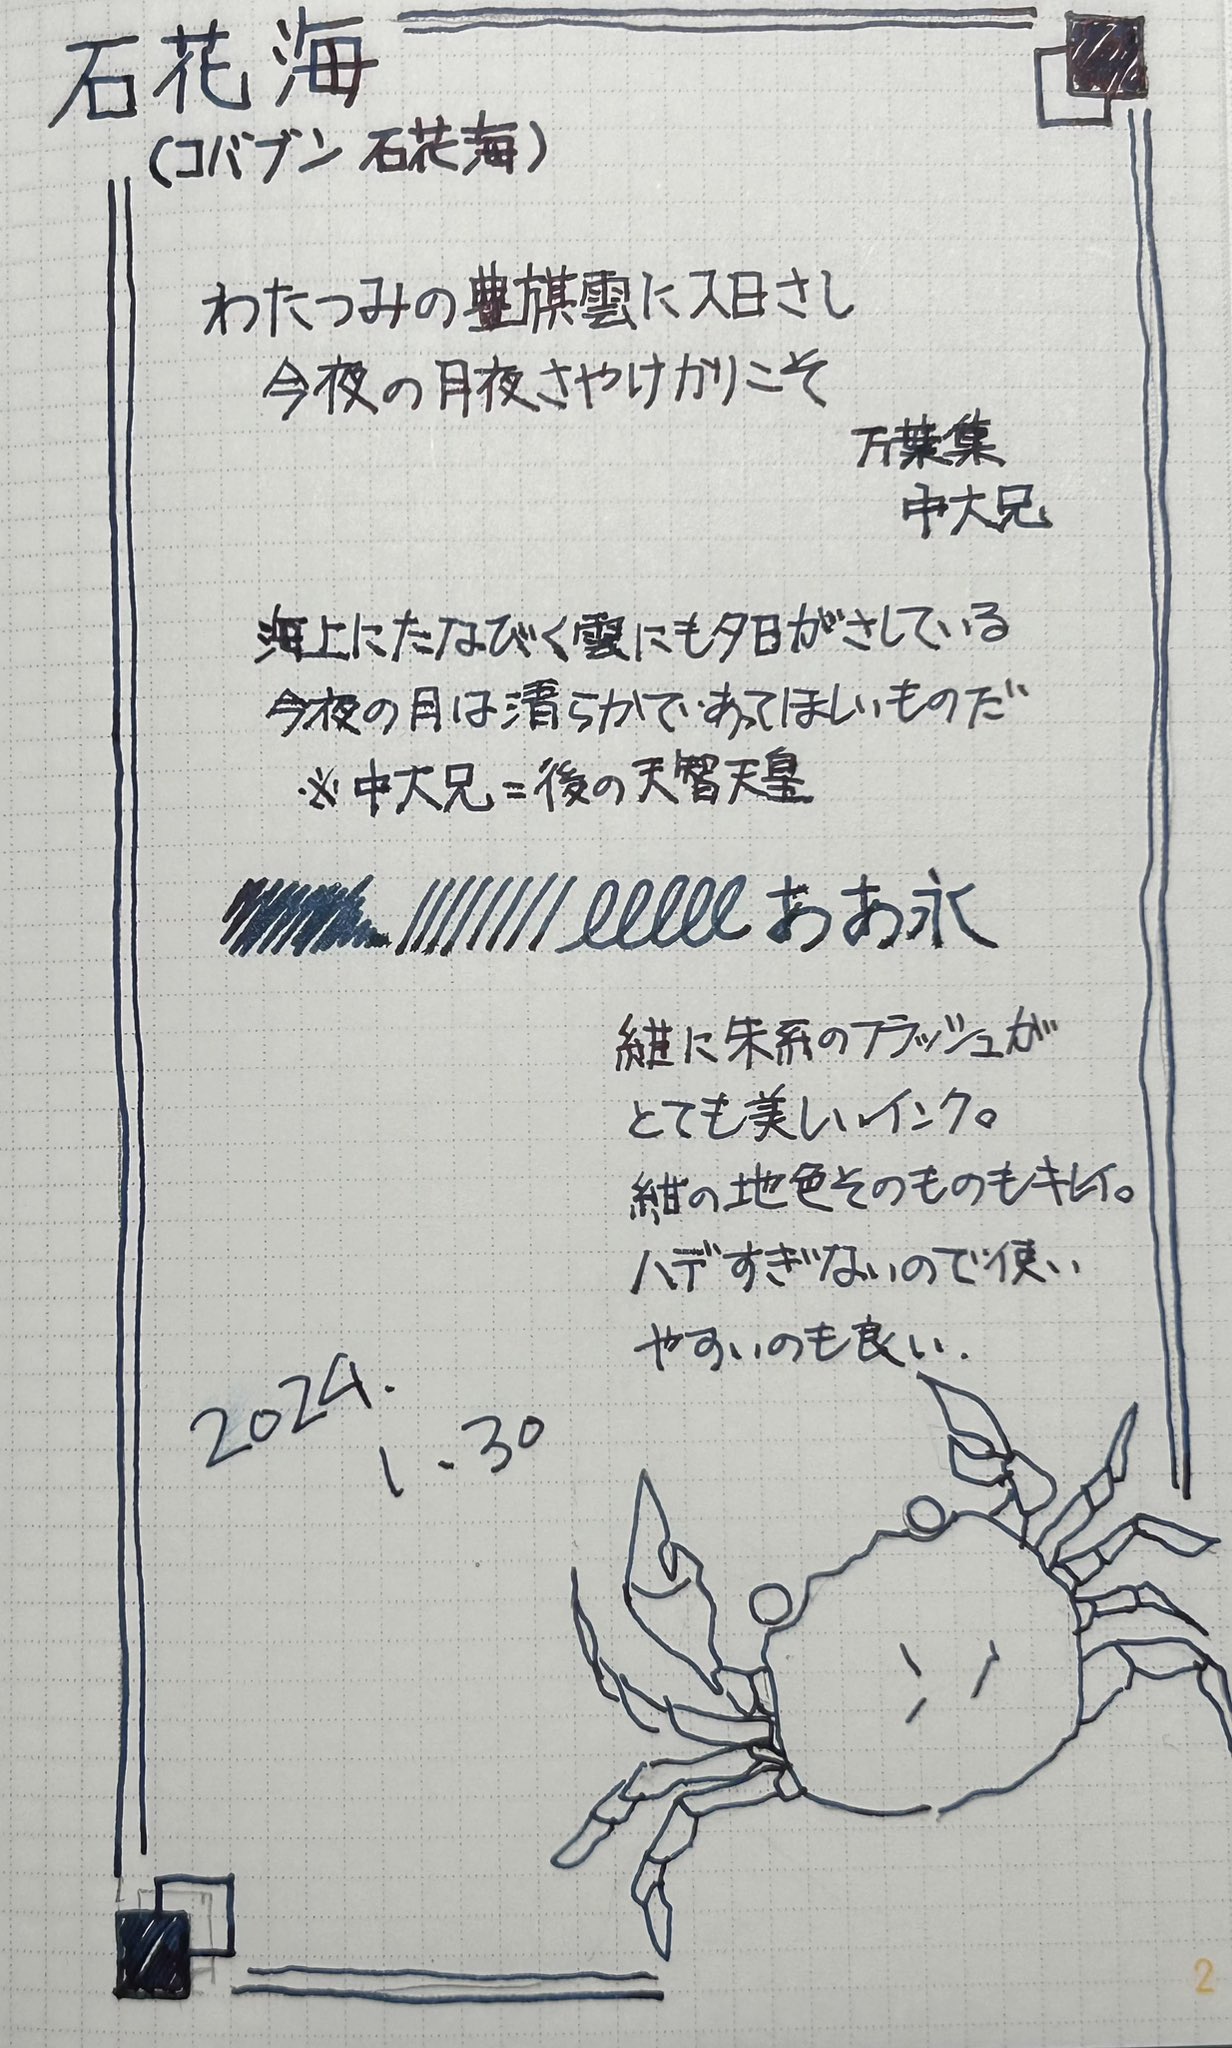 石花海
(コバブン 石花海)
わたつみの豊旗雲に入日さし
今夜の月夜さやけかりこそ
万葉集
中大兄
海上にたなびく雲にも夕日がさしている
今夜の月は清らかであってほしいものだ
※中大兄=後の天智天皇
ああ永
紺に朱系のフラッシュが
とても美しいインク。
紺の地色そのものもキレイ。
ハデすぎないので使い
やすいのも良い.
2024.
1.30
2